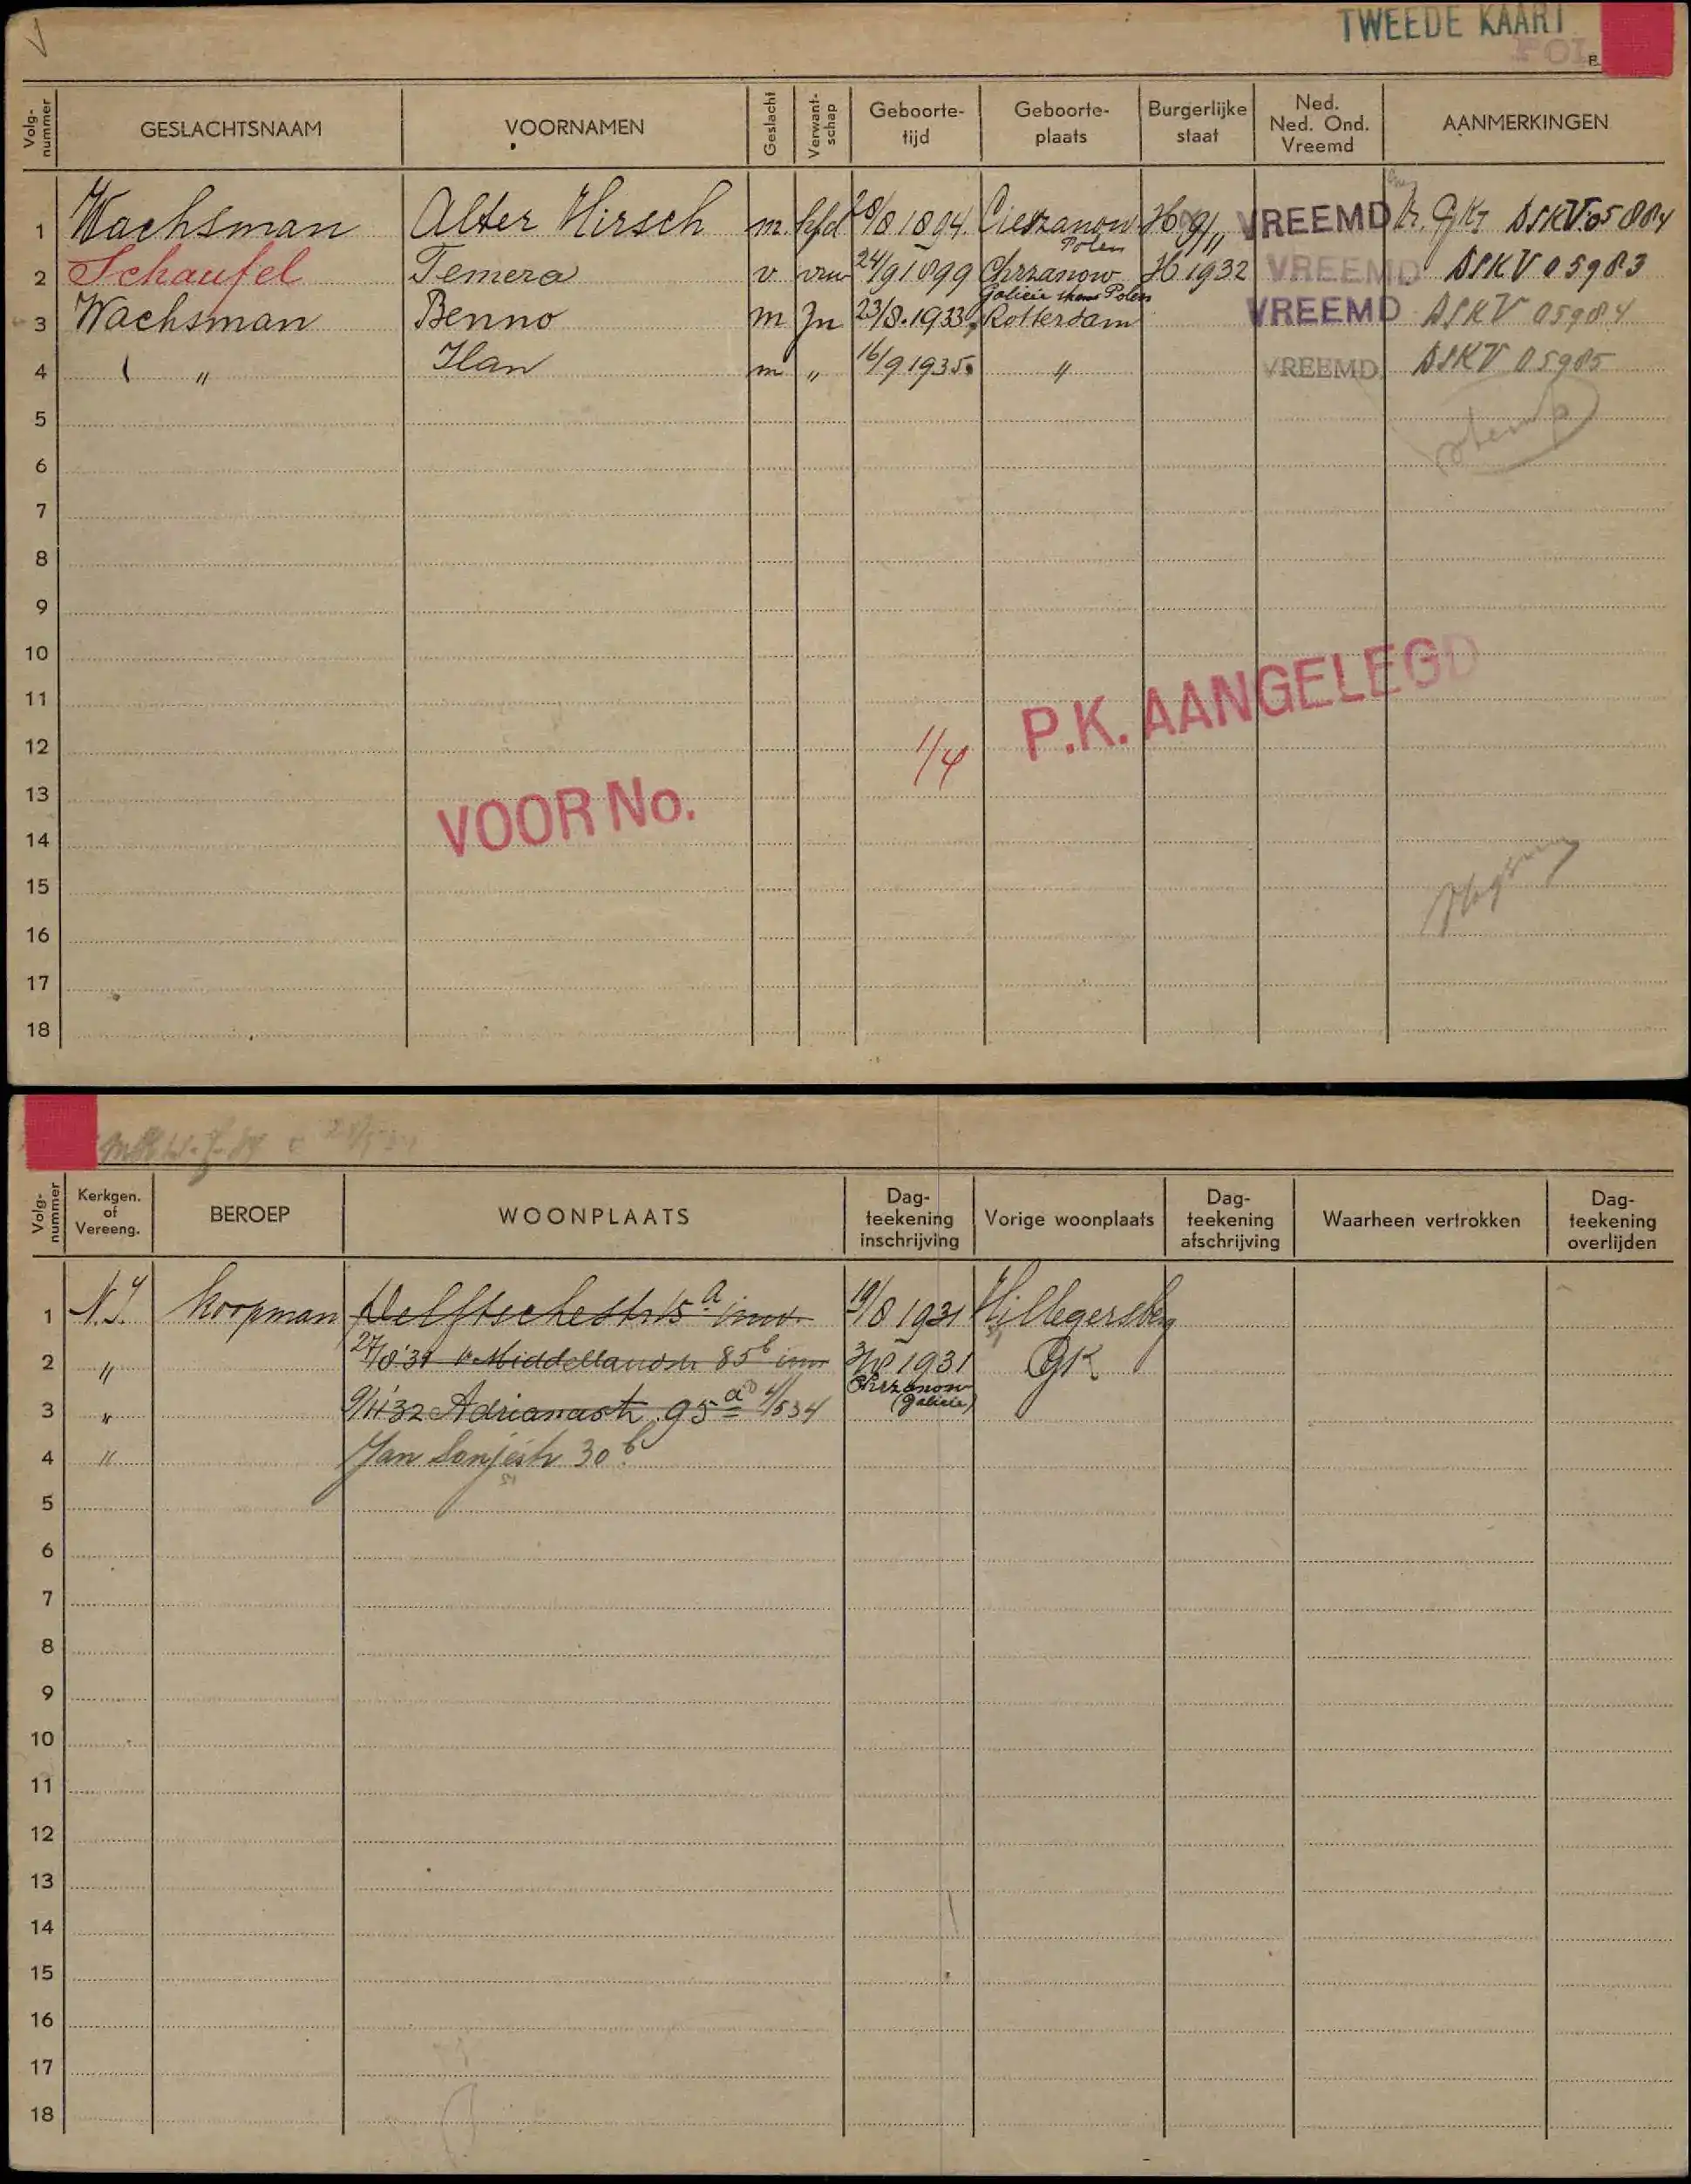 TWEEDE KAART
Volg-nummer GESLACHTSNAAM VOORNAMEN Geslacht Verwant-schap Geboorte-tijd Geboorte-plaats Burgerlijke staat Ned. Ned. Ond. Vreemd AANMERKINGEN
1 Wachsman Alter Hirsch m. hfd 28/8 1894. Cieszanow Polen H VREEMD
2 Schaufel Temera v vrw 24/9 1899 Chrzanow Galicië thans Polen H 1932 VREEMD DSKV 05983
3 Wachsman Benno m Zn 23/8.1933 Rotterdam VREEMD DSKV 05984
4 " Ilan m " 16/9 1935. " VREEMD. DSKV 05985
5
6
7
8
9
10
11 P.K. AANGELEGD
12 1/4
13
14 VOOR No.
15
16
17
18
Volg-nummer Kerkgen. of Vereeng. BEROEP WOONPLAATS Dag-teekening inschrijving Vorige woonplaats Dag-teekening afschrijving Waarheen vertrokken Dag-teekening overlijden
1 N.I. koopman Delftschestr 15 a inw. 19/8 1931 Hillegersberg
2 " 27/8'31 Middellandstr 85 b inw 1931 GK
Chrzanow
3 " 9/11'32 Adrianastr 95 a 4/5 34 (Galicie)
4 " Jan Sonjéstr 30 b
5
6
7
8
9
10
11
12
13
14
15
16
17
18